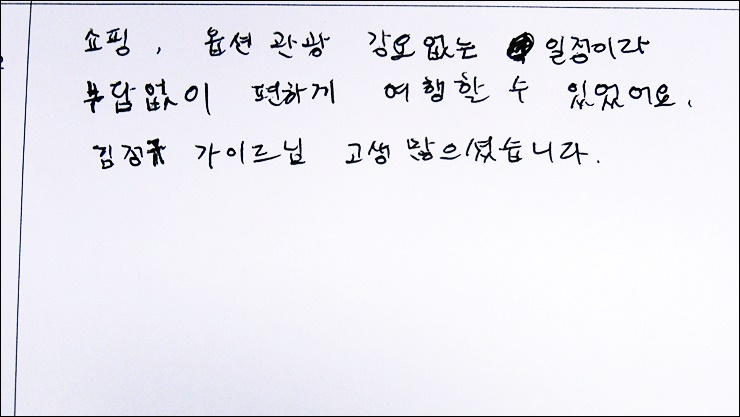 쇼핑, 옵션관광 강요없는 일정이라
부담없이 편하게 여행할 수 있었어요.
가이드님 고생 많으셨습니다.